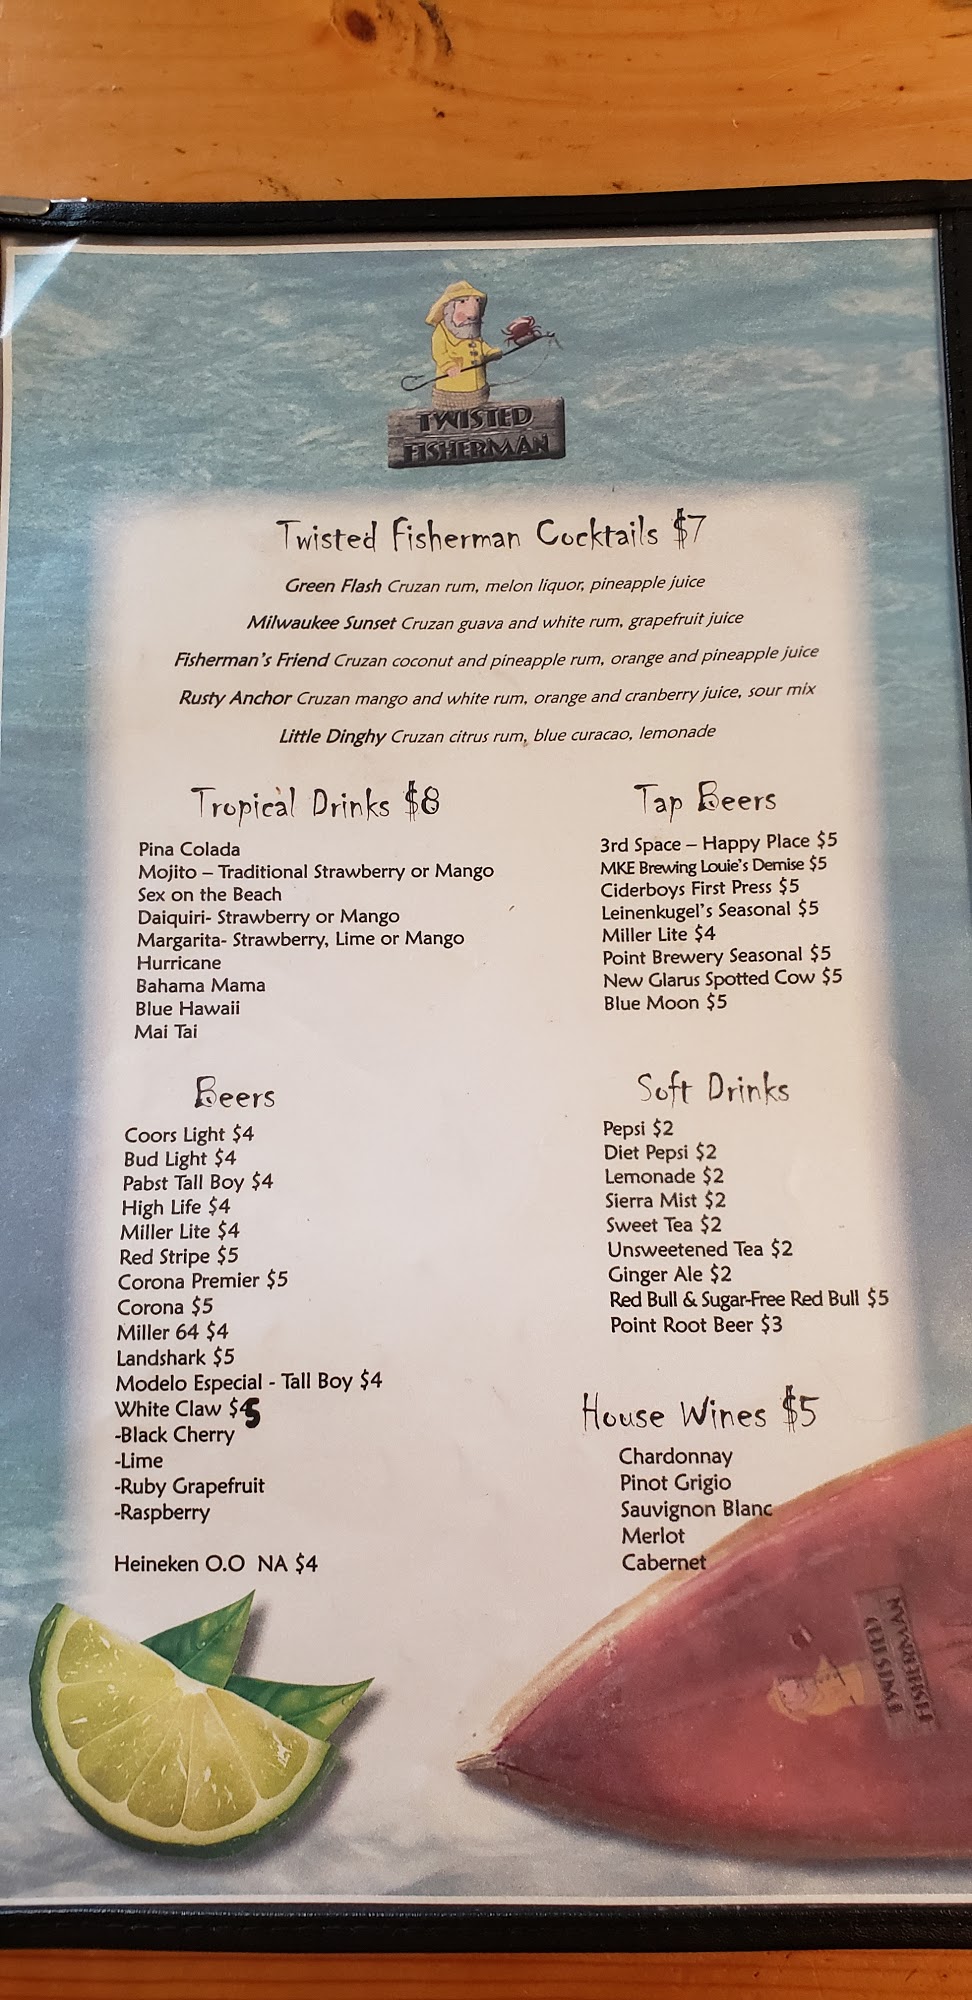 TWISTED
FISHERMAN
Twisted Fisherman Cocktails $7
Green Flash Cruzan rum, melon liquor, pineapple juice
Milwaukee Sunset Cruzan guava and white rum, grapefruit juice
Fisherman's Friend Cruzan coconut and pineapple rum, orange and pineapple juice
Rusty Anchor Cruzan mango and white rum, orange and cranberry juice, sour mix
Little Dinghy Cruzan citrus rum, blue curacao, lemonade
Tropical Drinks $8
Pina Colada
Mojito – Traditional Strawberry or Mango
Sex on the Beach
Daiquiri- Strawberry or Mango
Margarita- Strawberry, Lime or Mango
Hurricane
Bahama Mama
Blue Hawaii
Mai Tai
Tap Beers
3rd Space – Happy Place $5
MKE Brewing Louie's Demise $5
Ciderboys First Press $5
Leinenkugel's Seasonal $5
Miller Lite $4
Point Brewery Seasonal $5
New Glarus Spotted Cow $5
Blue Moon $5
Beers
Coors Light $4
Bud Light $4
Pabst Tall Boy $4
High Life $4
Miller Lite $4
Red Stripe $5
Corona Premier $5
Corona $5
Miller 64 $4
Landshark $5
Modelo Especial - Tall Boy $4
White Claw $5
-Black Cherry
-Lime
-Ruby Grapefruit
-Raspberry
Heineken O.O NA $4
Soft Drinks
Pepsi $2
Diet Pepsi $2
Lemonade $2
Sierra Mist $2
Sweet Tea $2
Unsweetened Tea $2
Ginger Ale $2
Red Bull & Sugar-Free Red Bull $5
Point Root Beer $3
House Wines $5
Chardonnay
Pinot Grigio
Sauvignon Blanc
Merlot
Cabernet
TWISTED
FISHERMAN